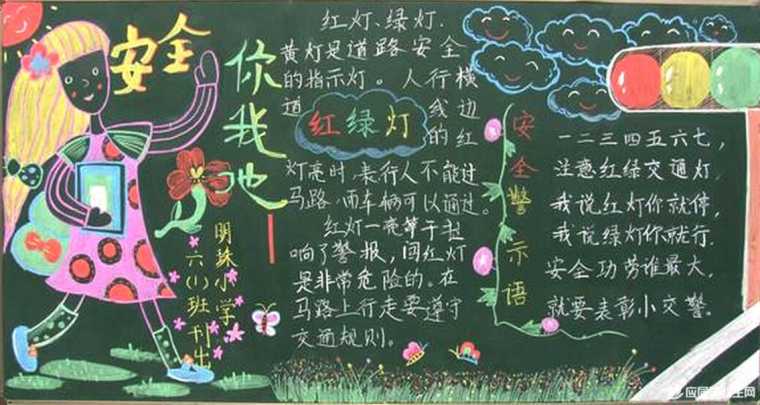 安全
你我他
明珠小学
六(1)班刊出
红灯、绿灯、
黄灯是道路安全
的指示灯。人行横
道 线边
红绿灯
的红
灯亮时，表行人不能过
马路，而车辆可以通过。
红灯一亮等于拉
响了警报，闯红灯
是非常危险的。在
马路上行走要遵守
交通规则。
安全警示语
一二三四五六七，
注意红绿交通灯，
我说红灯你就停，
我说绿灯你就行，
安全功劳谁最大，
就要表彰小交警。